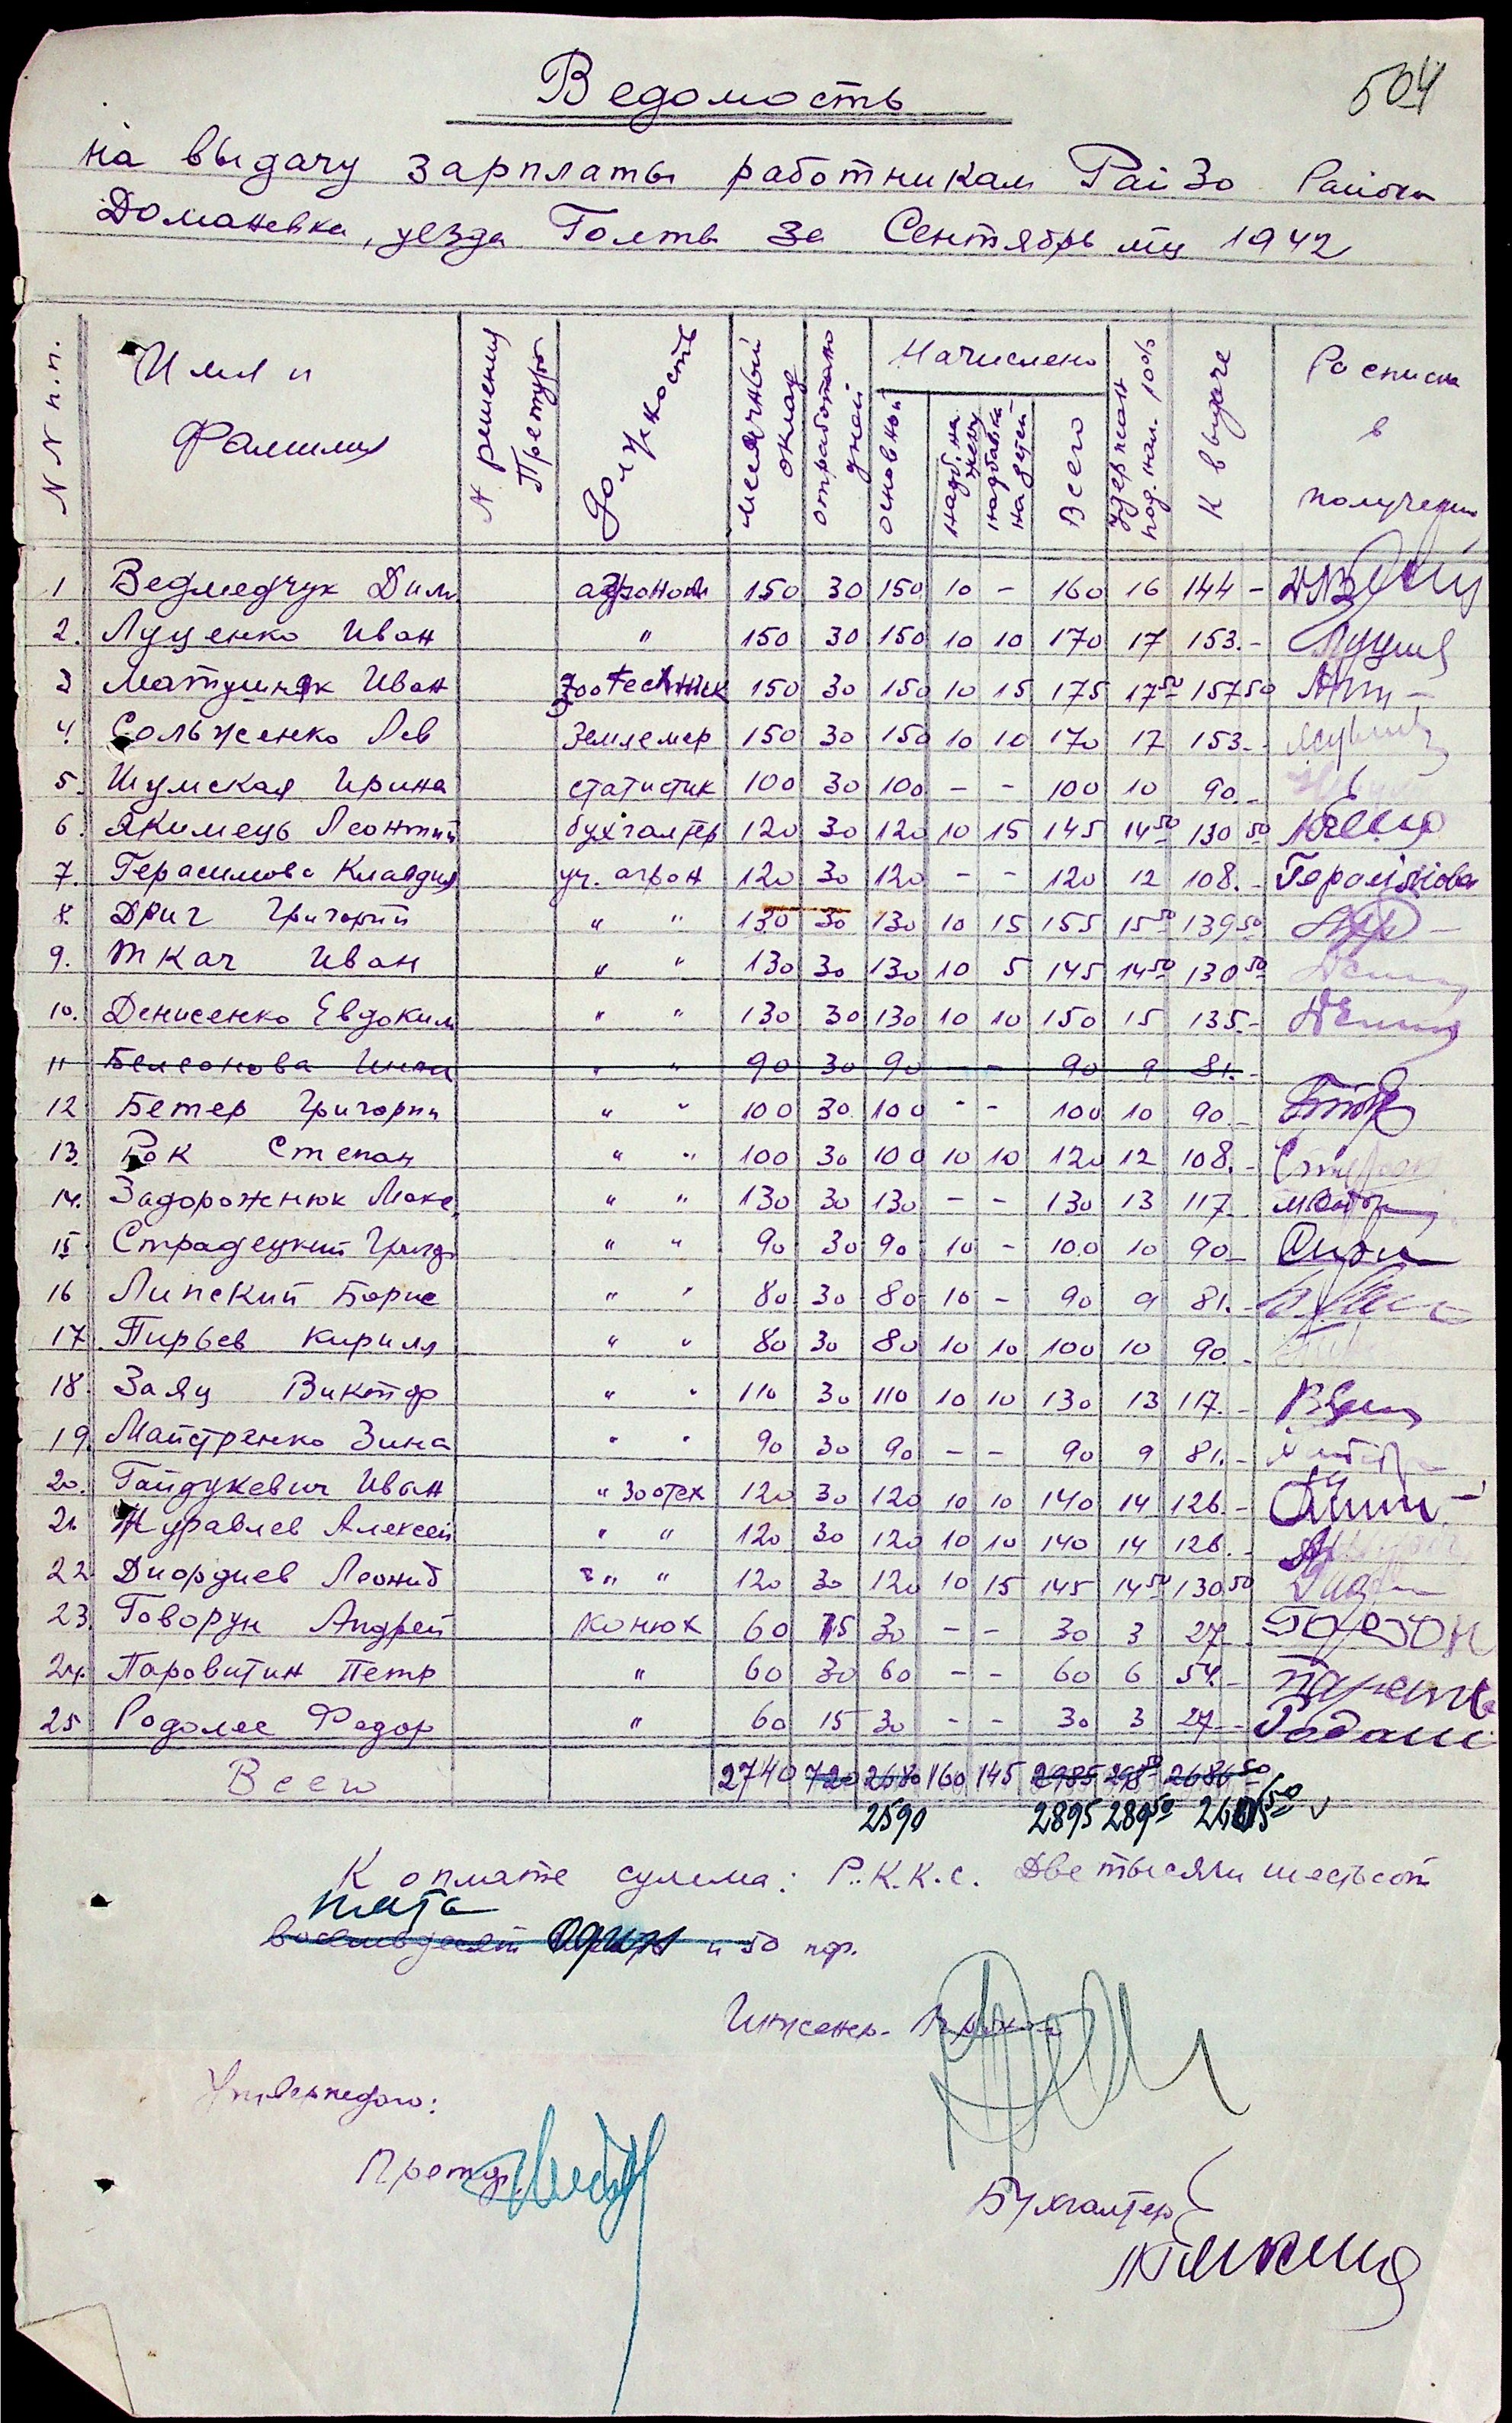 504
Ведомость
на выдачу зарплаты работникам РайЗо Района
Доманевка, уезда Голта за Сентябрь мц 1942
N N п.п. Имя и Фамилия N решения Претуры Должность месячный оклад отработано дней Начислено основной надб. на жену надбавка на детей Всего Удержан под. нал. 10% К выдаче Росписка в получении
1 Ведмедчук Дим. агроном 150 30 150 10 - 160 16 144 -
2. Луценко Иван " 150 30 150 10 10 170 17 153.-
3 Матушняк Иван Зоотехник 150 30 150 10 15 175 17 50 157 50
4. Сольженко Лев Землемер 150 30 150 10 10 170 17 153.-
5. Шумская Ирина статистик 100 30 100 - - 100 10 90.-
6. Якимець Леонтий бухгалтер 120 30 120 10 15 145 14 50 130 50
7. Герасимова Клавдия уч. агрон 120 30 120 - - 120 12 108.- Герасімова
8. Дрич Григорий " " 130 30 130 10 15 155 15 50 139 50
9. Ткач Иван " " 130 30 130 10 5 145 14 50 130 50
10. Денисенко Евдоким " " 130 30 130 10 10 150 15 135.-
11 Белеонова Инна " " 90 30 90 - - 90 9 81.-
12 Бетер Григорий " " 100 30 100 - - 100 10 90.-
13. Рак Степан " " 100 30 100 10 10 120 12 108.-
14. Задорожнюк Макс. " " 130 30 130 - - 130 13 117.-
15 Страдецкий Григор " " 90 30 90 10 - 100 10 90 -
16 Липский Борис " " 80 30 80 10 - 90 9 81.-
17. Пирьев Кирилл " " 80 30 80 10 10 100 10 90.-
18. Заяц Виктор " " 110 30 110 10 10 130 13 117.-
19. Майстренко Зина " " 90 30 90 - - 90 9 81.-
20. Гайдукевич Иван " Зоотех 120 30 120 10 10 140 14 126.-
21 Журавлев Алексей " " 120 30 120 10 10 140 14 126.-
22 Диордиев Леонид " " 120 30 120 10 15 145 14 50 130 50
23. Говорун Андрей конюх 60 15 30 - - 30 3 27
24. Паровитин Петр " 60 30 60 - - 60 6 54.-
25 Родолес Федор " 60 15 30 - - 30 3 27 -
Всего 2740 720 2680 160 145 2985 298 50 2686 50
2590 2895 289 50 2605 50
К оплате сумма: Р.К.К.с. Две тысячи шестьсот
пять
восемьдесят один и 50 пф.
Инженер-
Утверждаю:
Претор
Бухгалтер